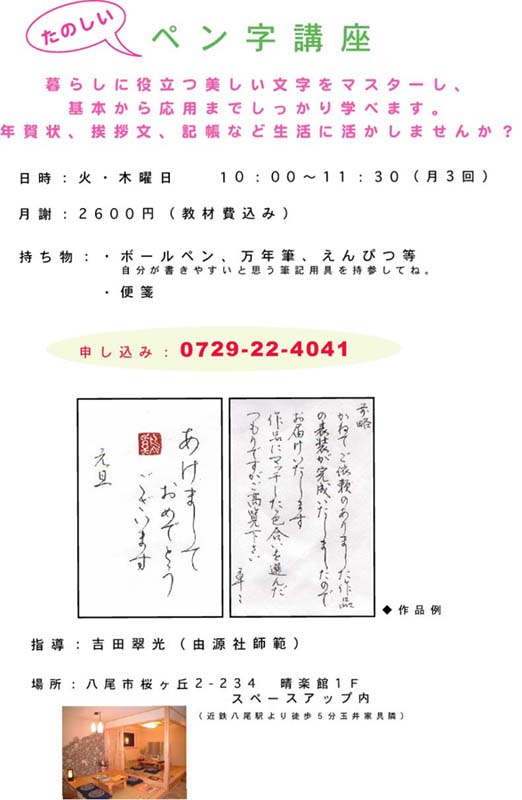 たのしい
ペン字講座
暮らしに役立つ美しい文字をマスターし、
基本から応用までしっかり学べます。
年賀状、挨拶文、記帳など生活に活かしませんか?
日時:火・木曜日 10:00~11:30(月3回)
月謝:2600円(教材費込み)
持ち物:・ボールペン、万年筆、えんぴつ等
自分が書きやすいと思う筆記用具を持参してね。
・便箋
申し込み:0729-22-4041
あけまして
おめでとう
ございます
元旦
前略
かねてご依頼のありました作品
の表装が完成いたしましたので
お届けいたします
作品にマッチした色合いを選んだ
つもりですがご高覧下さい
草々
◆作品例
指導:吉田翠光(由源社師範)
場所:八尾市桜ヶ丘2-234 晴楽館1F
スペースアップ内
(近鉄八尾駅より徒歩5分玉井家具隣)